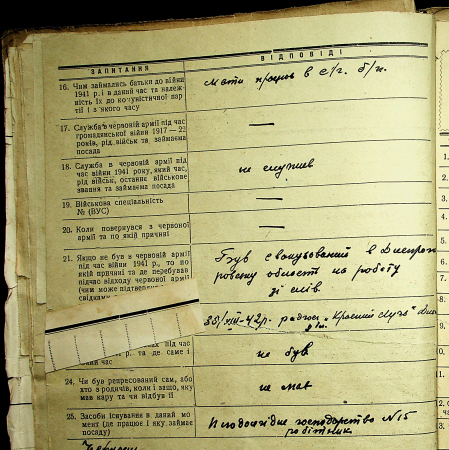 ЗАПИТАННЯ
ВІДПОВІДІ
16. Чим займались батьки до війни
1941 р. і в даний час та належ-
ність їх до комуністичної пар-
тії і з якого часу
Мати працює в с/г. б/п.
17. Служба в червоній армії під час
громадянської війни 1917—22
років, рід військ та займаєма
посада
—
18. Служба в червоній армії під
час війни 1941 року, який час,
рід військ, останнє військове
звання та займаєма посада
не служив
19. Військова спеціальність
№ (ВУС)
—
20. Коли повернувся з червоної
армії та по якій причині
—
21. Якщо не був в червоній армії
під час війни 1941 р. то по
якій причині та де перебував
підчас відходу червоної армії
(чим може підтвердит
свідками
Був евакуйований в Днепроп
ровську область на роботу
/XII-42р.
під час
р. та де саме і
ий час
не був
24. Чи був репресований сам, або
хто з родичів, коли і защо, яку
мав кару та чи відбув її
не мав
25. Засоби існування в даний мо
мент (де працює і яку займає
посаду)
господарство №15
робітник